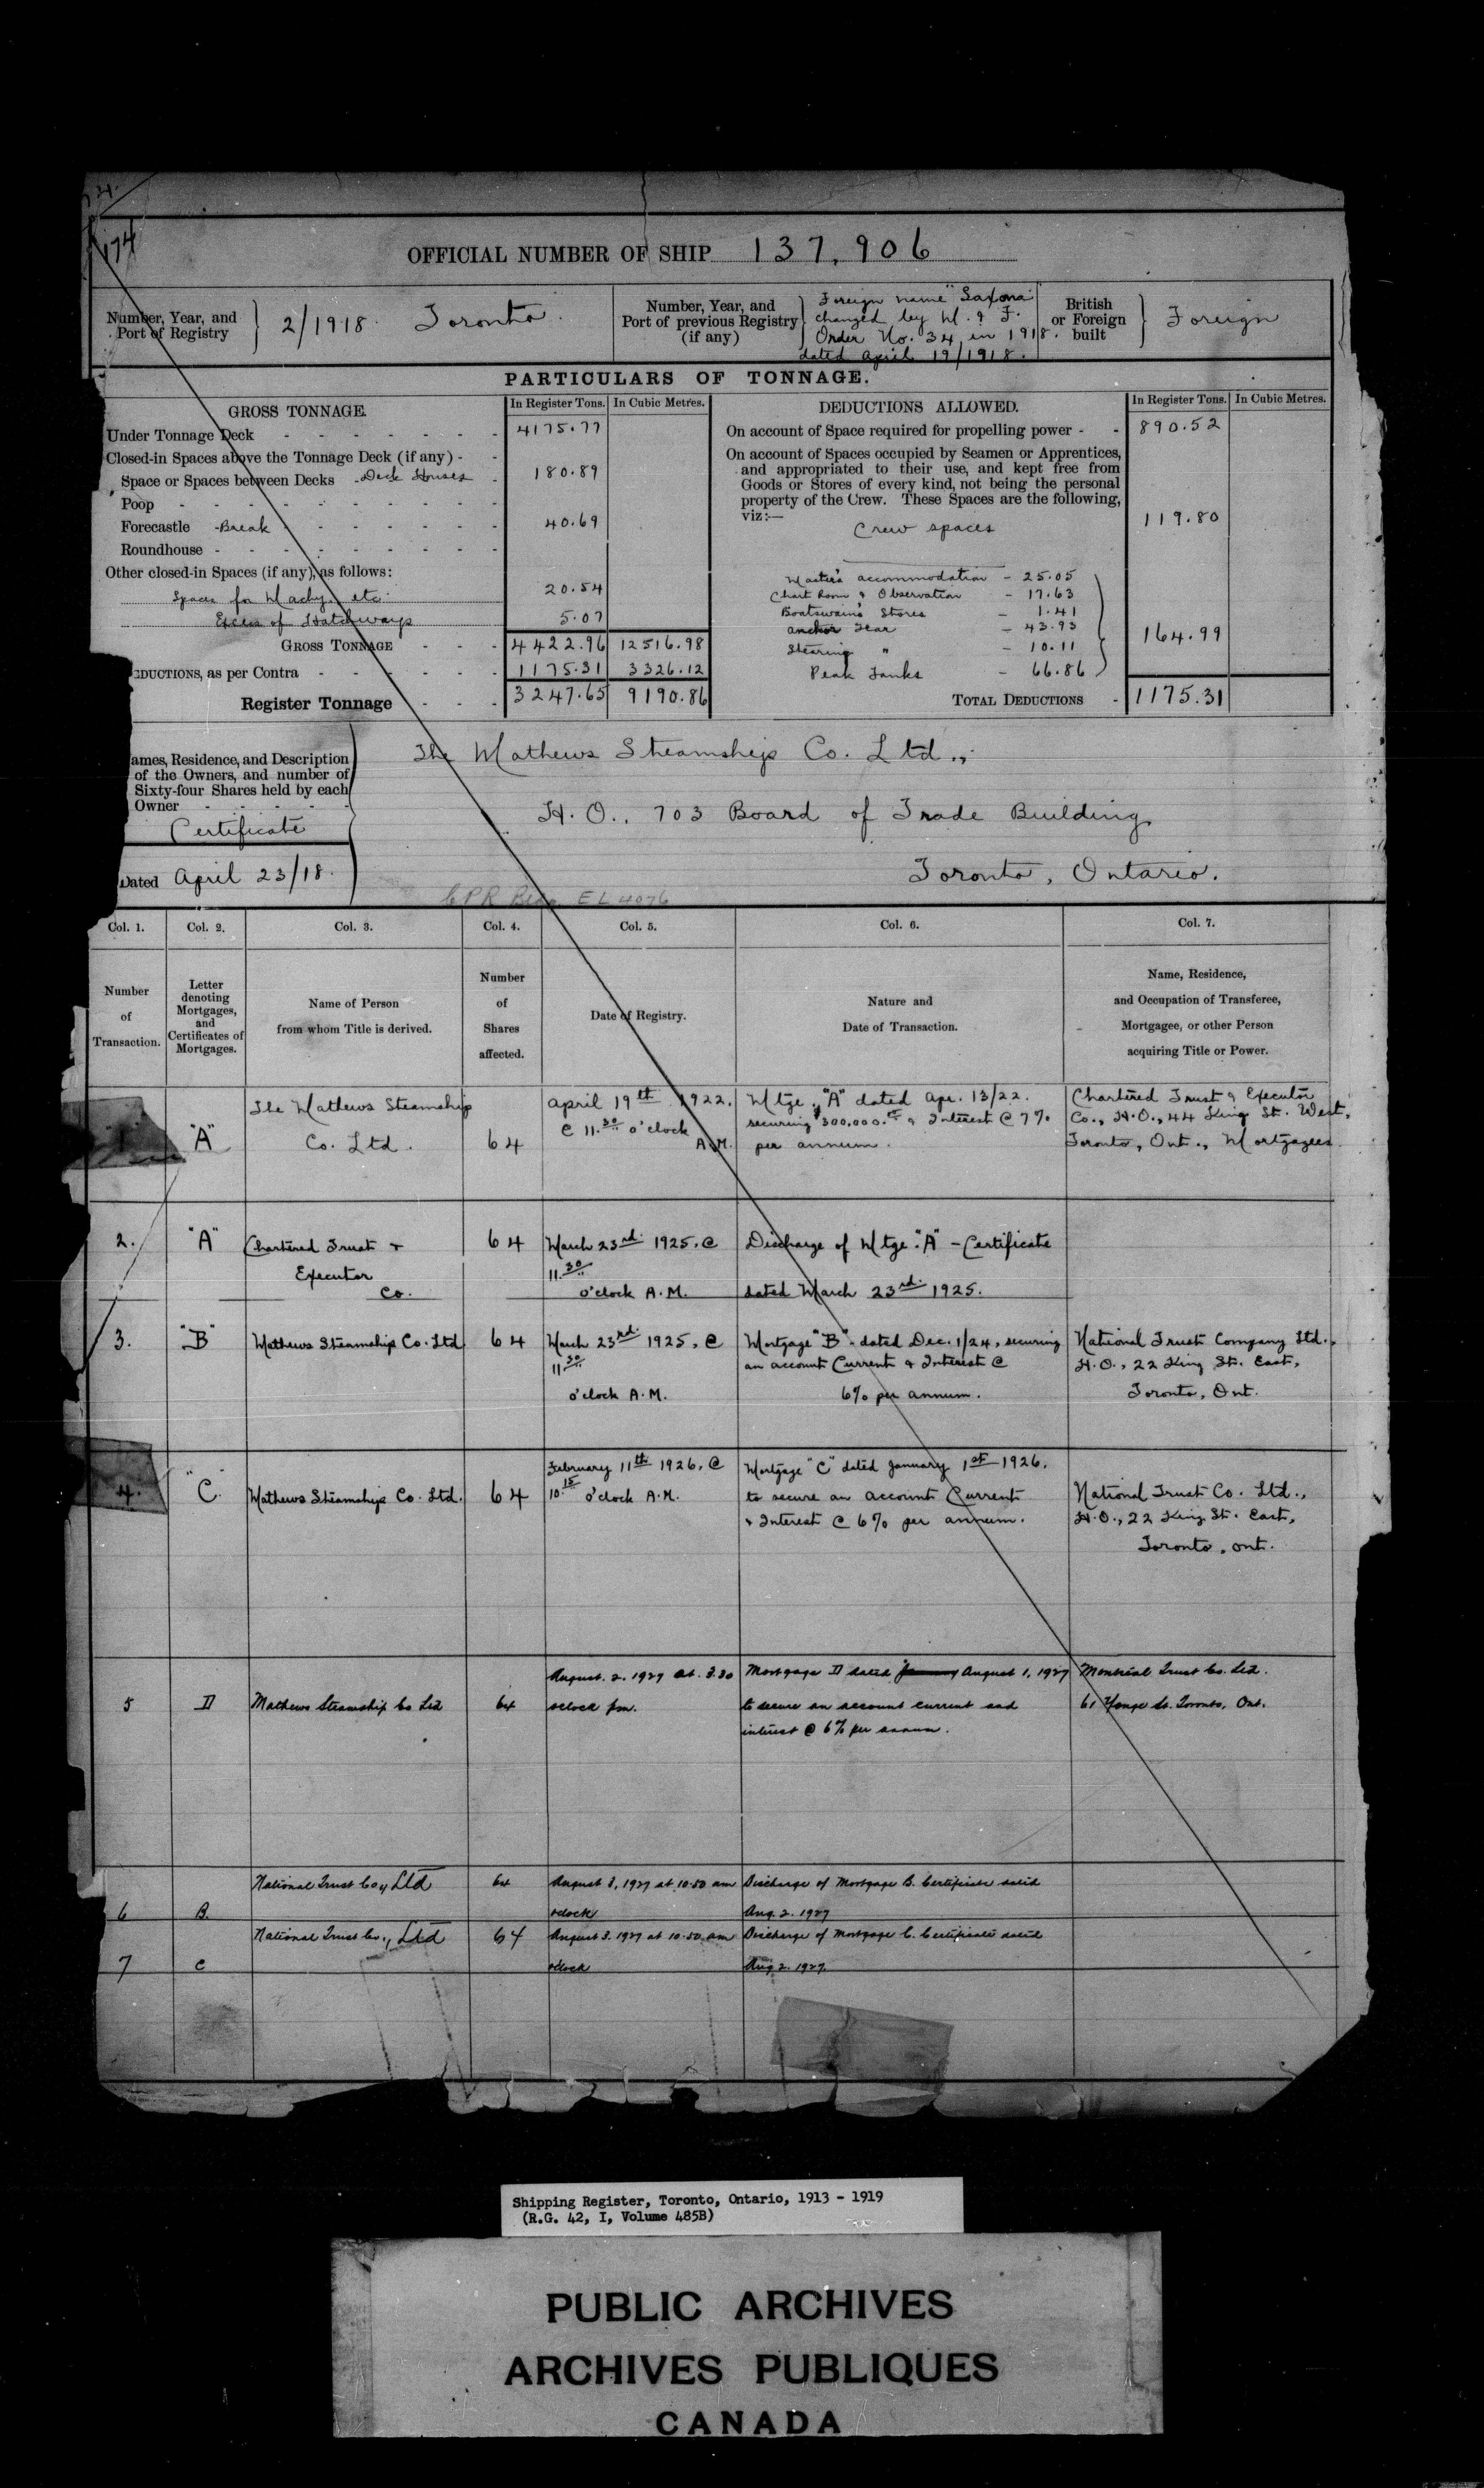 174
OFFICIAL NUMBER OF SHIP 137,906
Number, Year, and Port of Registry } 2/1918. Toronto.
Number, Year, and Port of previous Registry (if any) } Foreign name "Saxona"
changed by M. & F.
Order No. 34 in 1918.
dated April 19/1918.
British or Foreign built } Foreign
PARTICULARS OF TONNAGE.
GROSS TONNAGE. In Register Tons. In Cubic Metres.
Under Tonnage Deck 4175.77
Closed-in Spaces above the Tonnage Deck (if any) -
Space or Spaces between Decks - Deck Houses 180.89
Poop
Forecastle - Break 40.69
Roundhouse
Other closed-in Spaces (if any), as follows:
Spaces for Machy. etc. 20.54
Excess of Hatchways 5.07
GROSS TONNAGE 4422.96 12516.98
EDUCTIONS, as per Contra 1175.31 3326.12
Register Tonnage 3247.65 9190.86
DEDUCTIONS ALLOWED. In Register Tons. In Cubic Metres.
On account of Space required for propelling power - - 890.52
On account of Spaces occupied by Seamen or Apprentices,
and appropriated to their use, and kept free from
Goods or Stores of every kind, not being the personal
property of the Crew. These Spaces are the following,
viz:—
Crew spaces 119.80
Master's accommodation - 25.05
Chart Room & Observation - 17.63
Boatswain's Stores - 1.41
Anchor Gear - 43.93
Steering " - 10.11
Peak Tanks - 66.86
164.99
TOTAL DEDUCTIONS - 1175.31
ames, Residence, and Description
of the Owners, and number of
Sixty-four Shares held by each
Owner
Certificate
Dated April 23/18.
The Mathews Steamship Co. Ltd.,
H.O., 703 Board of Trade Building
Toronto, Ontario.
CPR Bldg EL 4076
Col. 1. Col. 2. Col. 3. Col. 4. Col. 5. Col. 6. Col. 7.
Number of Transaction.
Letter denoting Mortgages, and Certificates of Mortgages.
Name of Person from whom Title is derived.
Number of Shares affected.
Date of Registry.
Nature and Date of Transaction.
Name, Residence, and Occupation of Transferee, Mortgagee, or other Person acquiring Title or Power.
1. "A" The Mathews Steamship Co. Ltd. 64
April 19th 1922. @ 11.30 o'clock A.M.
Mtge. "A" dated Apr. 13/22.
securing $300,000.00 & Interest @ 7%
per annum.
Chartered Trust & Executor
Co., H.O., 44 King St. West,
Toronto, Ont., Mortgagees.
2. "A" Chartered Trust & Executor Co. 64
March 23rd. 1925. @ 11.30 o'clock A.M.
Discharge of Mtge. "A" - Certificate
dated March 23rd. 1925.
3. "B" Mathews Steamship Co. Ltd 64
March 23rd. 1925, @ 11.30 o'clock A.M.
Mortgage "B" - dated Dec. 1/24, securing
an account Current & Interest @
6% per annum.
National Trust Company Ltd.,
H.O., 22 King St. East,
Toronto, Ont.
4. "C" Mathews Steamship Co. Ltd. 64
February 11th 1926, @ 10.15 o'clock A.M.
Mortgage "C" dated January 1st 1926,
to secure an account Current
& Interest @ 6% per annum.
National Trust Co. Ltd.,
H.O., 22 King St. East,
Toronto, Ont.
5 D Mathews Steamship Co Ltd 64
August. 2. 1927 at 3.30
oclock pm.
Mortgage D dated January August 1, 1927
to secure an account current and
interest @ 6% per annum.
Montreal Trust Co. Ltd.
61 Yonge St. Toronto, Ont.
6 B. National Trust Coy Ltd 64
August 3, 1927 at 10.50 am
oclock
Discharge of Mortgage B. Certificate dated
Aug. 2. 1927
7 C National Trust Co., Ltd 64
August 3. 1927 at 10.50 am
oclock
Discharge of Mortgage C. Certificate dated
Aug 2. 1927.
Shipping Register, Toronto, Ontario, 1913 - 1919
(R.G. 42, I, Volume 485B)
PUBLIC ARCHIVES
ARCHIVES PUBLIQUES
CANADA